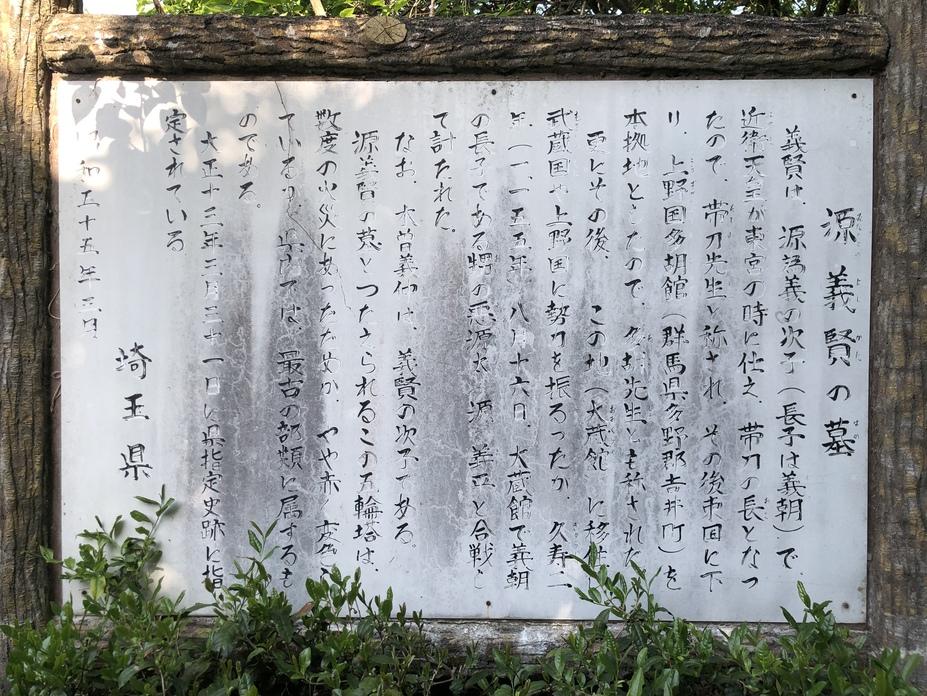 源義賢の墓
義賢は、源為義の次子（長子は義朝）で、
近衛天皇が東宮の時に仕え、帯刀の長となっ
たので、帯刀先生と称され、その後東国に下
り、上野国多胡館（群馬県多野郡吉井町）を
本拠地としたので、多胡先生とも称された
更にその後、この地（大蔵館）に移住
武蔵国や上野国に勢力を振るったが、久寿二
年（一一五五年）八月十六日、大蔵館で義朝
の長子である甥の悪源太源義平と合戦し
て討たれた。
なお、木曽義仲は、義賢の次子である。
源義賢の墓とつたえられるこの五輪塔は、
数度の火災にあったためか、やや赤変
ているが、県内では、最古の部類に属するも
のである。
大正十三年三月三十一日に県指定史跡に指
定されている
和五十五年三月
埼玉県